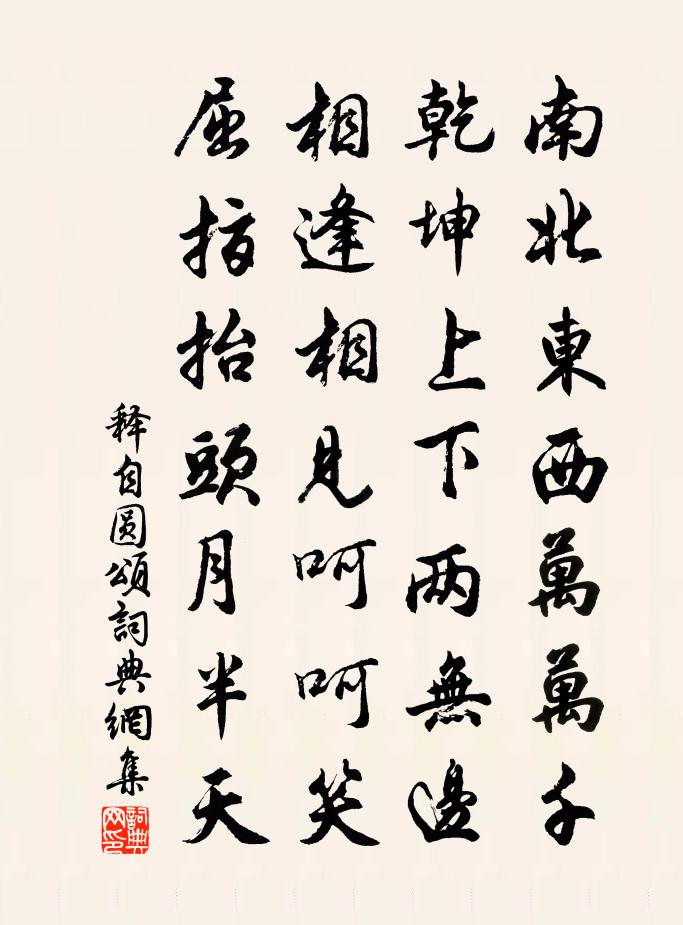 南北東西萬萬千
乾坤上下两無邊
相逢相見呵呵笑
屈指抬頭月半天
释自圆頌詞典網集
詞典网印